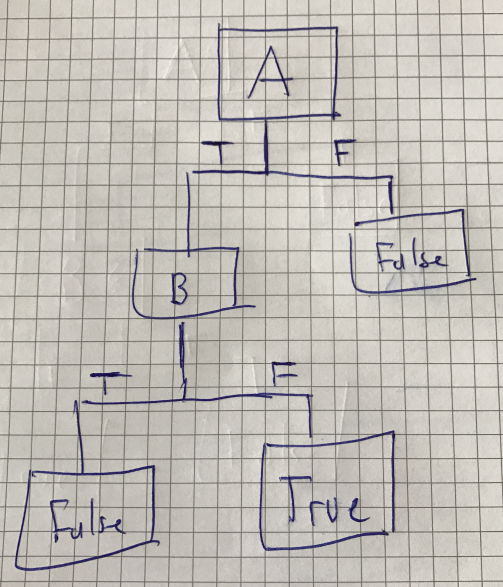 A
T F
False
B
T F
False
True